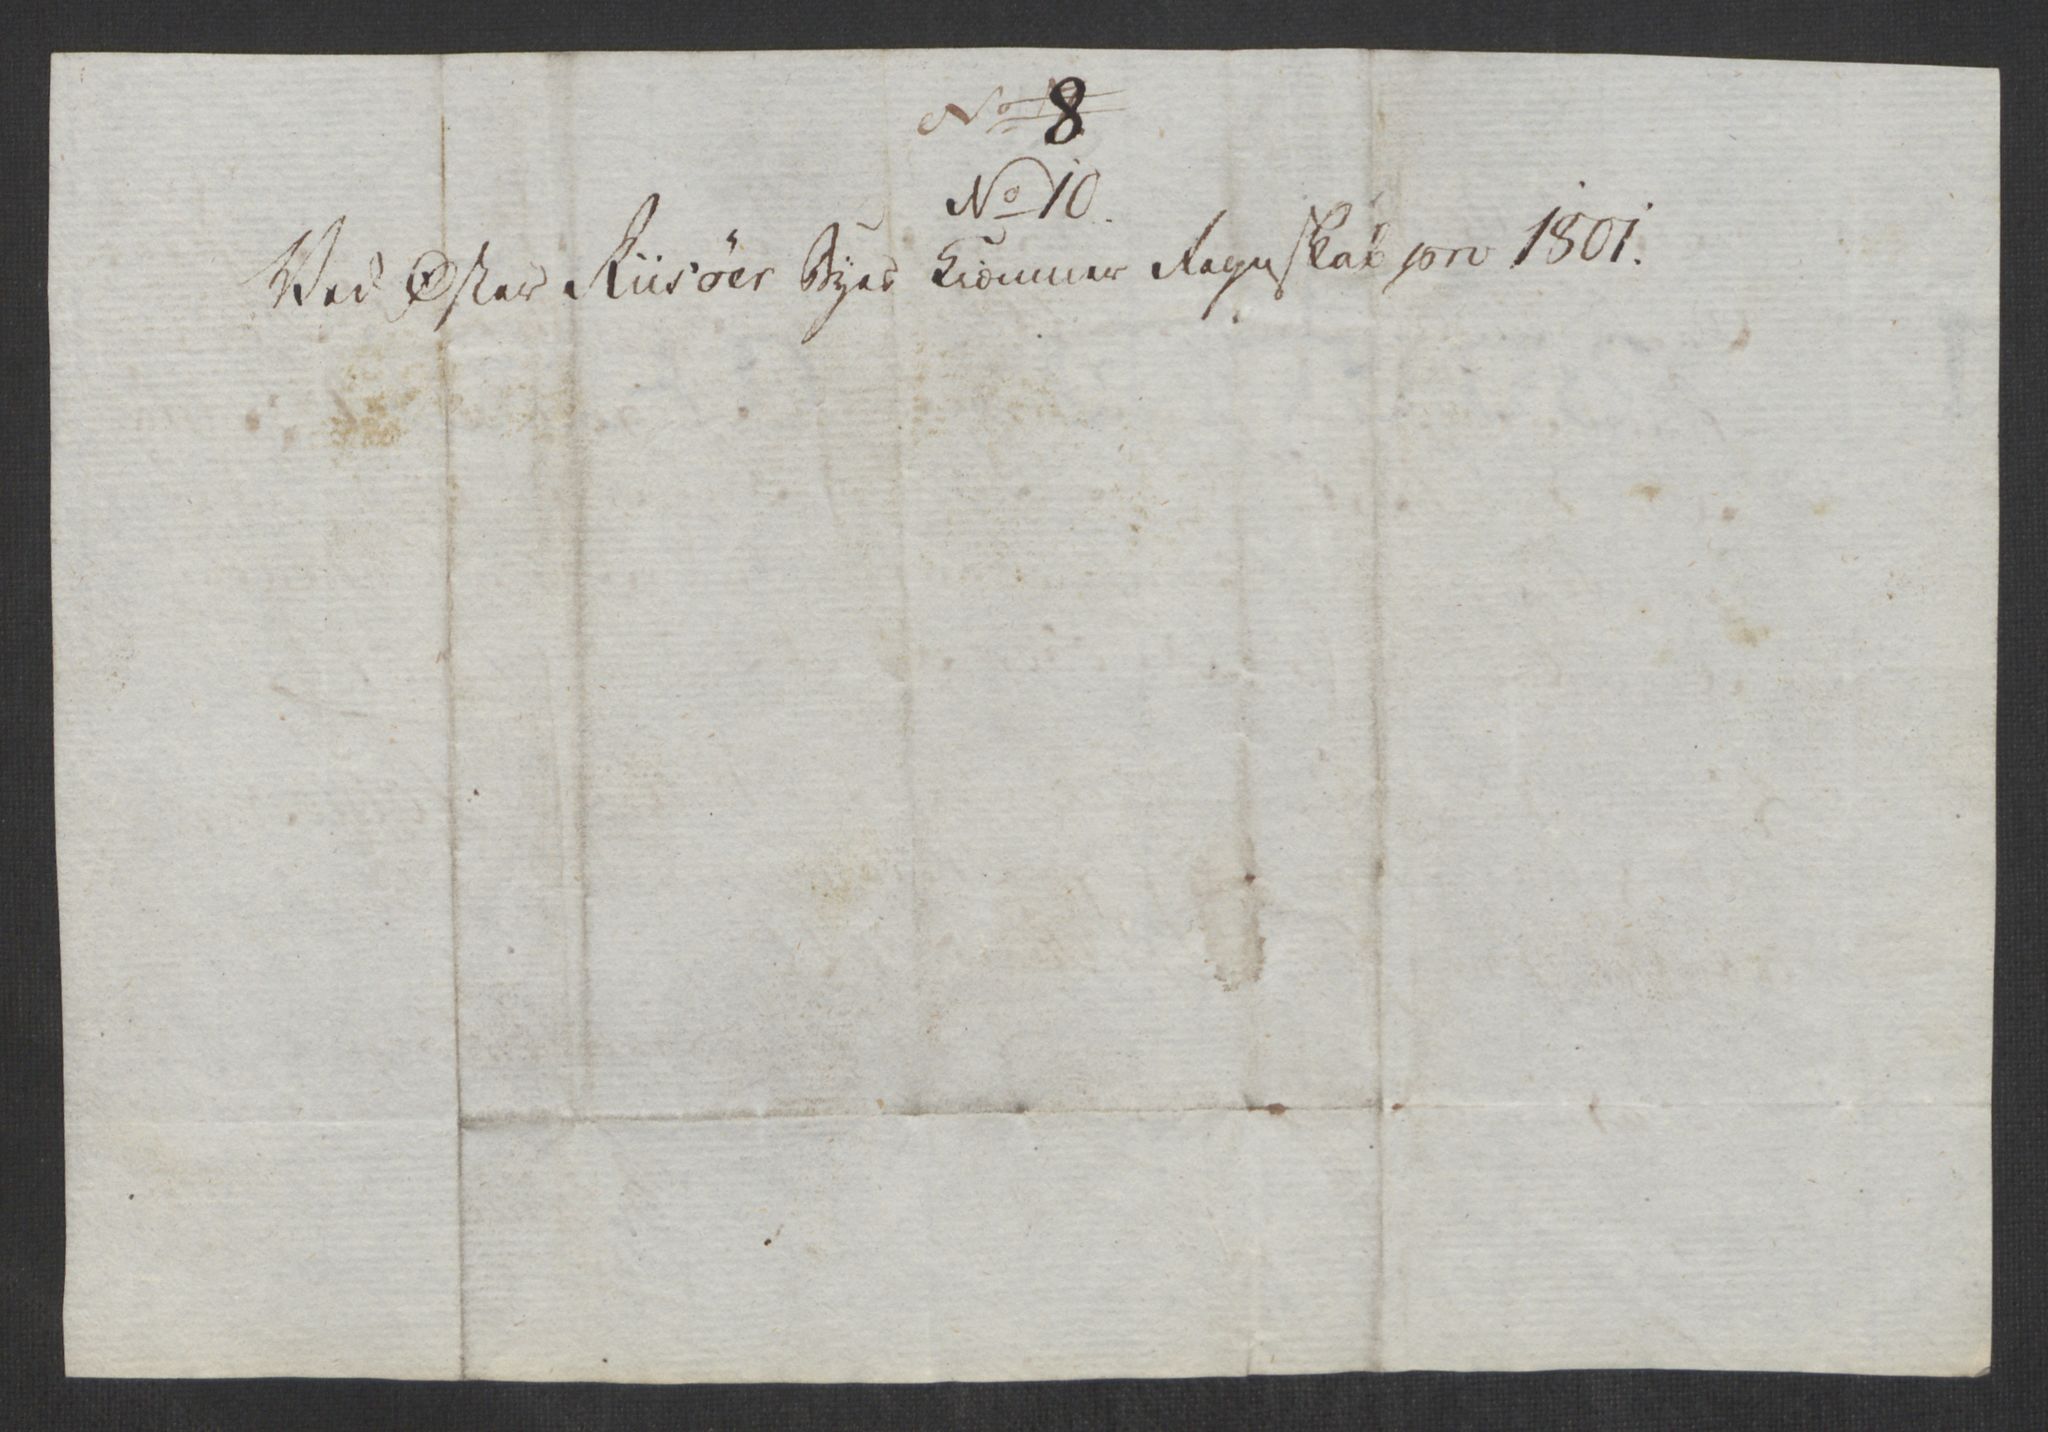 No 8
No 10.
Ved Øster Riisöer Byes Kiömner Regnskab pro 1801.